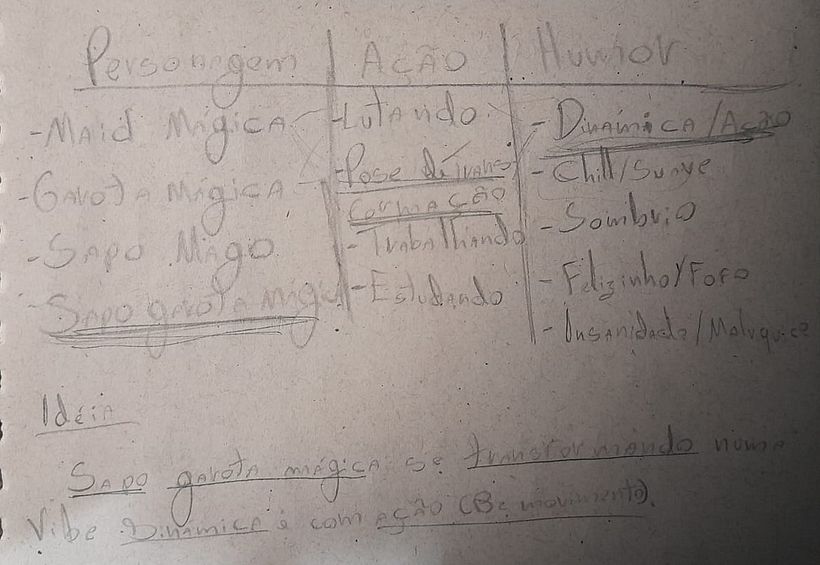 Personagem | Ação | Humor
- Maid Mágica - Lutando - Dinâmica/Ação
- Garota Mágica - Pose de transformação - Chill/Suave
- Sapo Mago - Trabalhando - Sombrio
- Sapo garota mágica - Estudando - Felizinho/Fofo
- Insanidade/Maluquice
Idéia
Sapo garota mágica se transformando numa
Vibe Dinâmica e com ação (Be movimento).